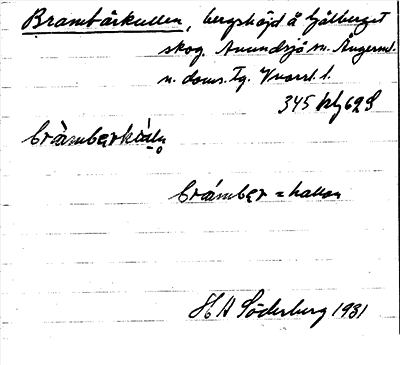 Brambärkullen, bergshöjd å Gålberget
skog. Anundsjö sn. Ångerml.
n. doms. Tg. Vnorrl. l.
345 kbl 62 S
bràmbərkùḷn
brámbər = hallon
H A Söderberg 1931